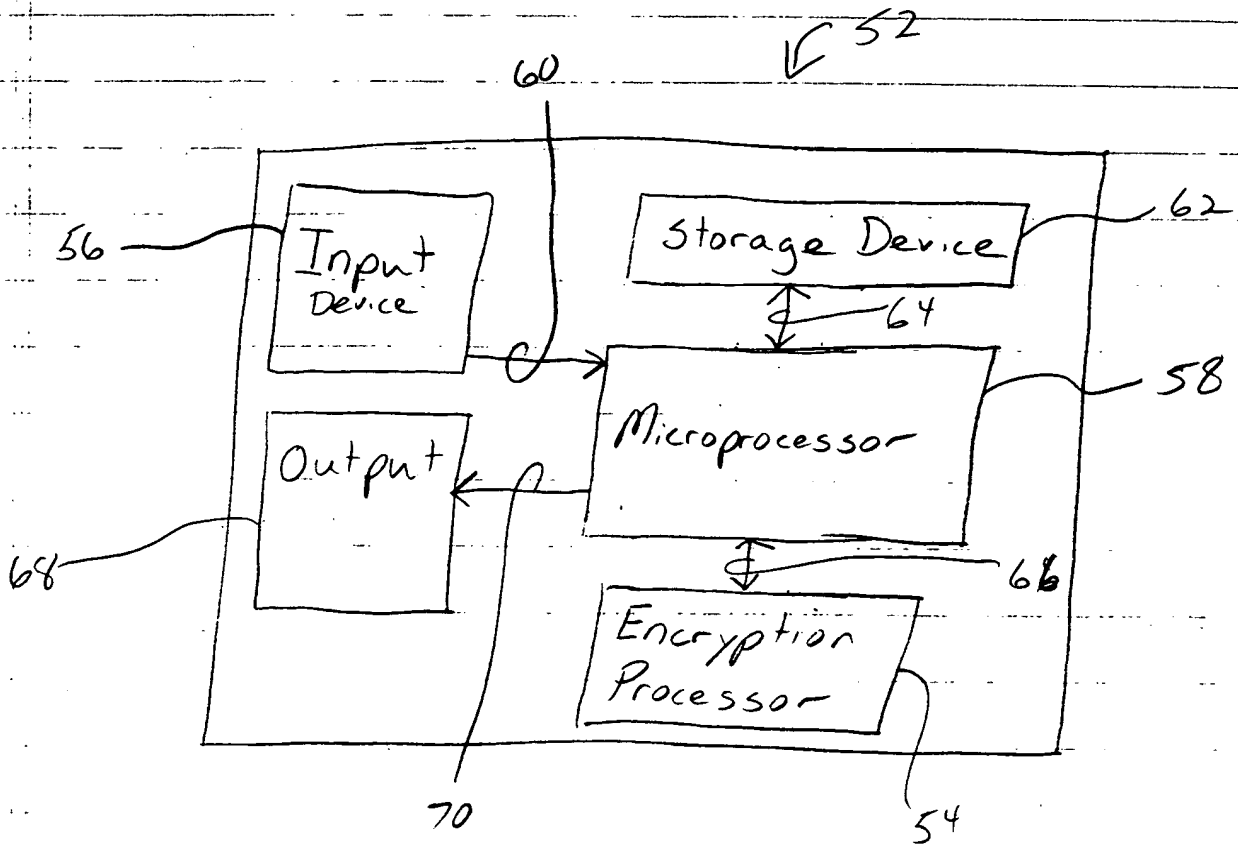 52
60
Input
Device
56
Storage Device
62
64
Microprocessor
58
Output
68
66
Encryption
Processor
70
54